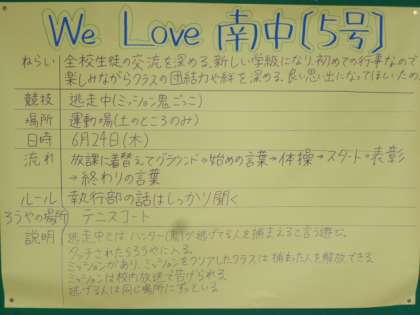 We Love 南中〔5号〕
ねらい 全校生徒の交流を深める。新しい学級になり、初めての行事なので
楽しみながらクラスの団結力や絆を深める。良い思い出になってほしいため。
競技 逃走中(ミッション鬼ごっこ)
場所 運動場(土のところのみ)
日時 6月24日(木)
流れ 放課に着替えてグラウンド→始めの言葉→体操→スタート→表彰
→終わりの言葉
ルール 執行部の話はしっかり聞く
ろうやの場所 テニスコート
説明 逃走中とはハンター(鬼)が逃げてる人を捕まえると言う遊び。
タッチされたらろうやに入る。
ミッションがあり、ミッションをクリアしたクラスは捕まった人を解放できる。
ミッションは校内放送で告げられる。
逃げる人は同じ場所にずっている。